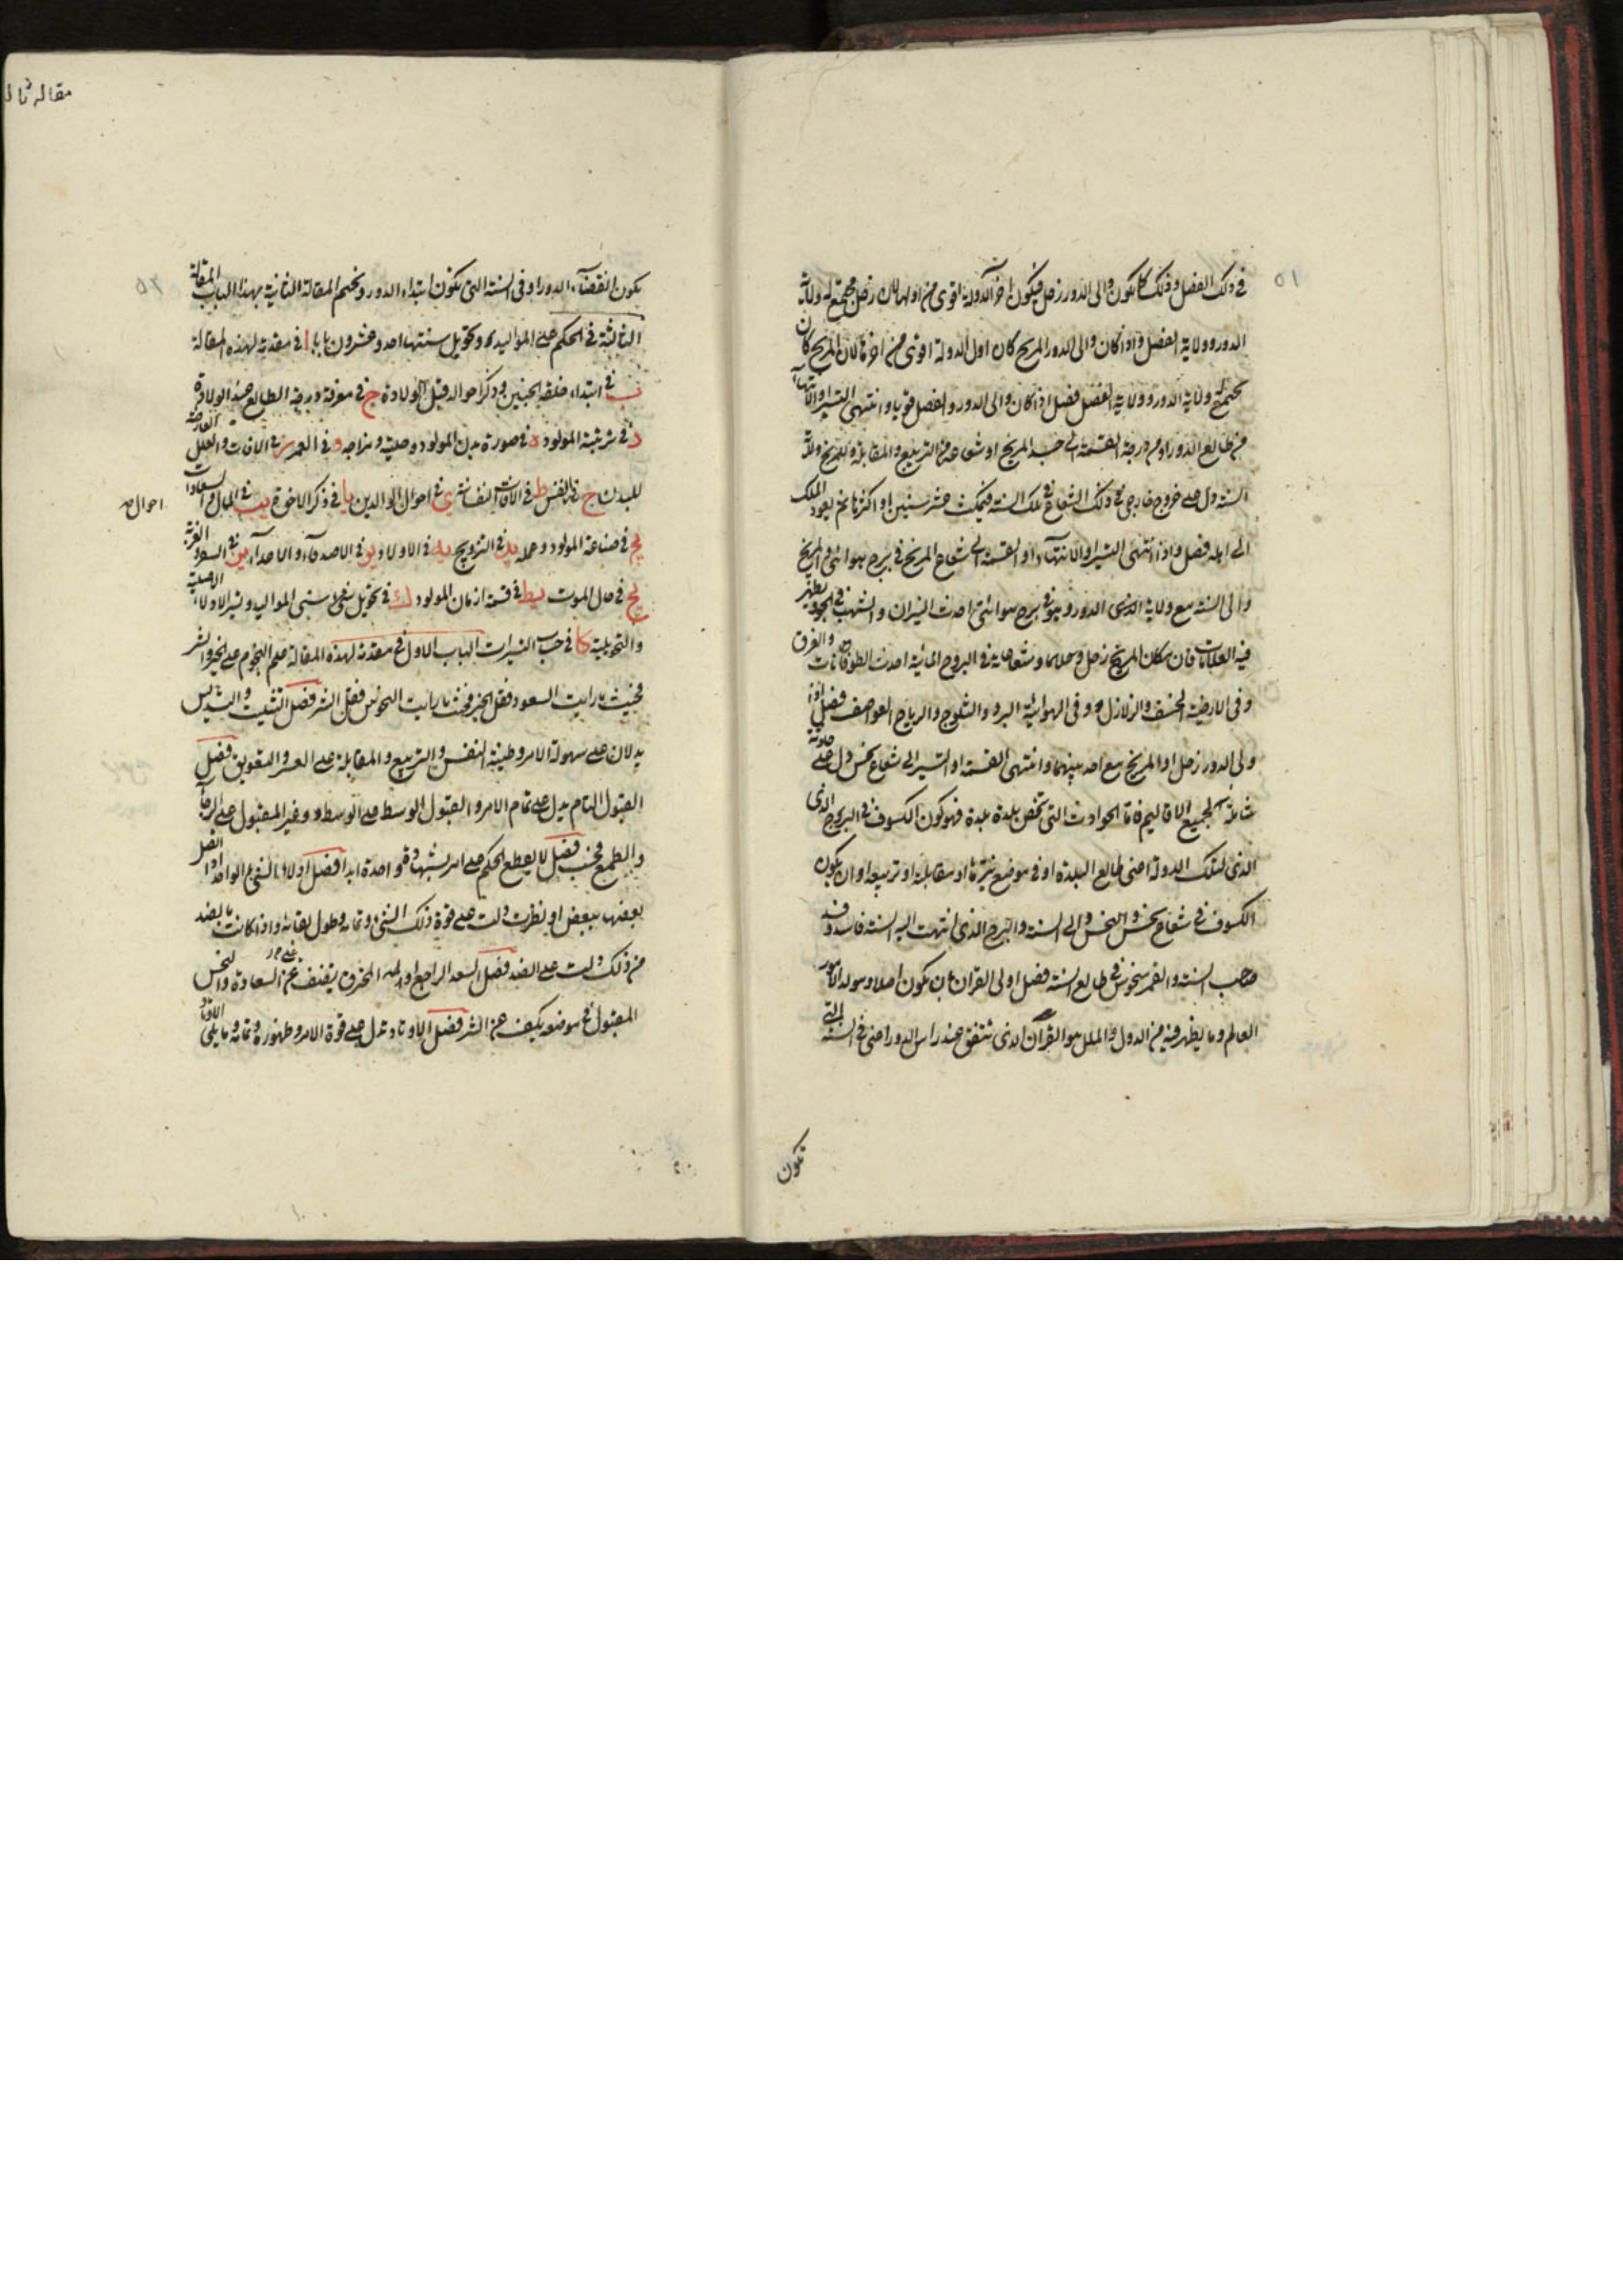 ٥١
في ذلك الفصل وذلك كما يكون والى الدور زحل فيكون اخر الدولة اقوى من اولها لان زحل مجتمع له ولاية
الدور وولاية الفصل واذا كان والى الدور المريخ كان اول الدولة اقوى من اخرها لان المريخ كان
يجتمع له ولاية الدور وولاية الفصل فصل اذا كان والى الدور والفصل قويا وانتهى التسير او الانتهاء
من طالع الدور او من درجة القسمة الى جسد المريخ او شعاعه من التربيع والمقابلة وللمريخ ولاية
السنة دل على خروج خارجي في ذلك الشعاع في تلك السنة فيمكث عشر سنين او اكثر ثم يعود الملك
الى اهله فصل واذا انتهى التسير او الانتهاء او القسمة الى شعاع المريخ في برج هوائي والمريخ
والى السنة مع ولاية الذي الدور وهو في برج هوائي احدث النيران والشهب في الجو ويظهر
فيه العلامات فان كان مكان المريخ زحل وحلاهما وشعاعاته في البروج المائية احدث الطوفانات والغرق
وفي الارضية الخسف والزلازل وفي الهوائية البرد والثلوج والرياح العواصف فصل اذا
ولى الدور زحل او المريخ مع احد بينهما وانتهى القسمة او التسير الى شعاع نحس دل على حادثة
شاملة لجميع الاقاليم فاما الحوادث التي تخص بلدة بلدة فهو كون الكسوف في البروج الذي
الذي لتلك الدولة اعني طالع البلدة او في موضع نيرها او مقابلته او تربيعه او ان يكون
الكسوف في شعاع نحس والنحس والى السنة والبرج الذي انتهت اليه السنة فاسد وقد
صاحب السنة والقمر منحوس في طالع السنة فصل اولى القران بان يكون اصلا ومولد الامور
العالم وما يظهر فيه من الدول والملل هو القران الذي يتفق عند راس الدور اعني في السنة التي
تكون
مقاله ثا
٥٢
يكون انقضاء الدور او في السنة التي يكون ابتداء الدور ونختم المقالة الثانية بهذا الباب المقالة
الثالثة في الحكم على المواليد وتحويل سنتها احد وعشرون بابا ا في مقدمة لهذه المقالة
ب في ابتداء خلقة الجنين وذكر احواله قبل الولادة ج في معرفة درجة الطالع عند الولادة
د في تربية المولود ه في صورة بدن المولود وحليته ومزاجه و في العمر ز في الافات والعلل العارضة
للبدن ح في النفس ط في الافات النفسانية ي في احوال الوالدين يا في ذكر الاخوة يب في المال والسعادات
احوال
يج في صناعة المولود وعمله يد في التزويج يه في الاولاد يو في الاصدقاء والاعداء يز في السفر والغربة
يح في حال الموت يط في قسمة ازمان المولود ك في تحويل سني المواليد وتسير الادلاء الاصلية
والتحويلية كا في حساب التسيرات الباب الاول في مقدمة لهذه المقالة علم النجوم على الخير والشر
فحيث ما رايت السعود فقل الخير وحيث ما رايت النحوس فقل الشر فصل التثليث والتسديس
يدلان على سهولة الامر وطيبة النفس والتربيع والمقابلة على العسر والتعويق فصل
القبول التام يدل على تمام الامر والقبول الوسط على الوسط وغير المقبول على الرجاء
والطمع فحسب فصل لا يقطع الحكم على امر بشهادة واحدة ابدا فصل ادلاء الشيء الواحد اذا اتصل
بعضها ببعض او نظرت دلت على قوة ذلك الشيء وتمامه وطول بقائه واذا كانت بالضد
من ذلك دلت على الضد فصل السعد الراجع او المحترق يضعف عن السعادة والنحس
المقبول في موضعه يكف عن الشر فصل الاوتاد تدل على قوة الامر وظهوره وتمامه وما يلي الاوتاد